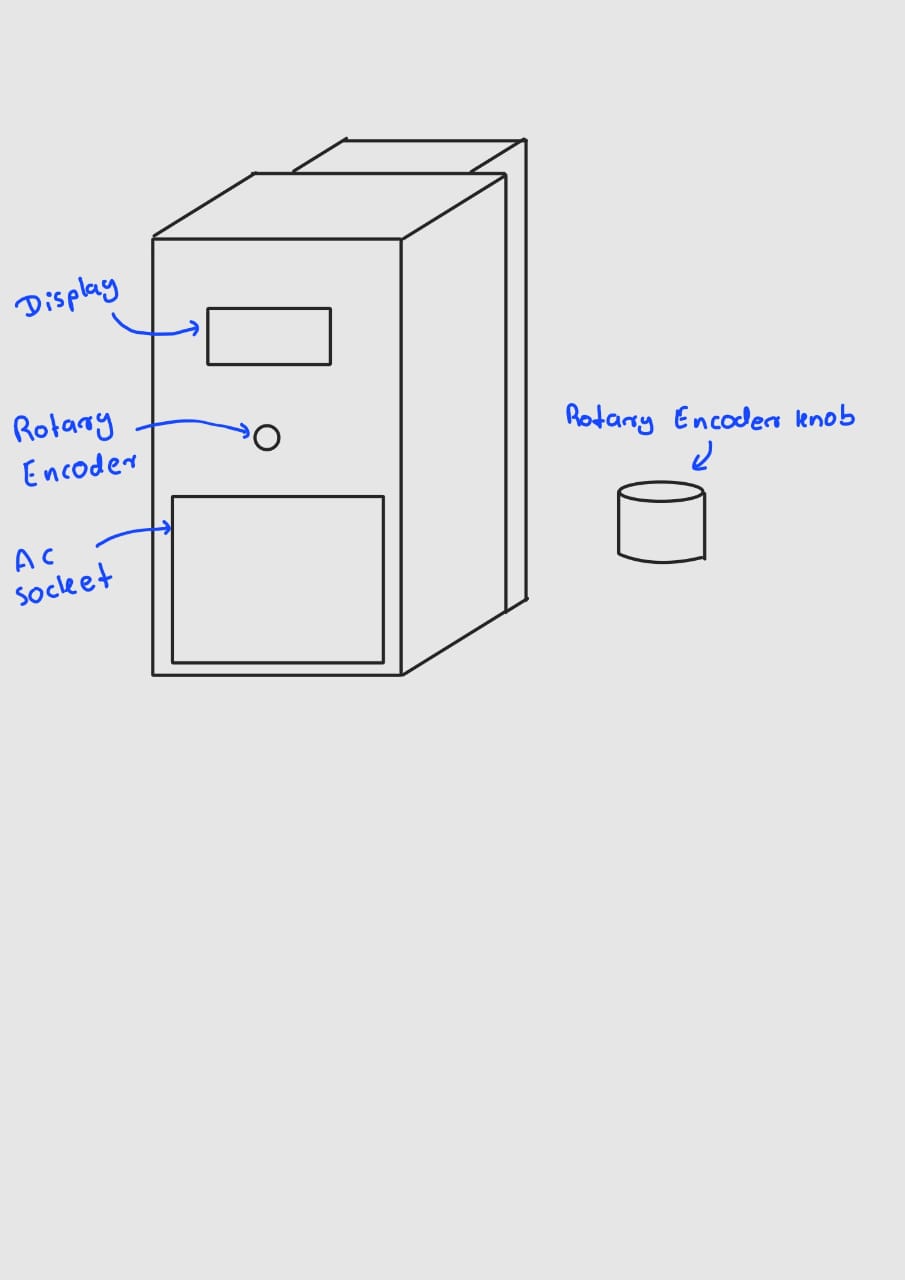 Display
Rotary
Encoder
AC
socket
Rotary Encoder knob